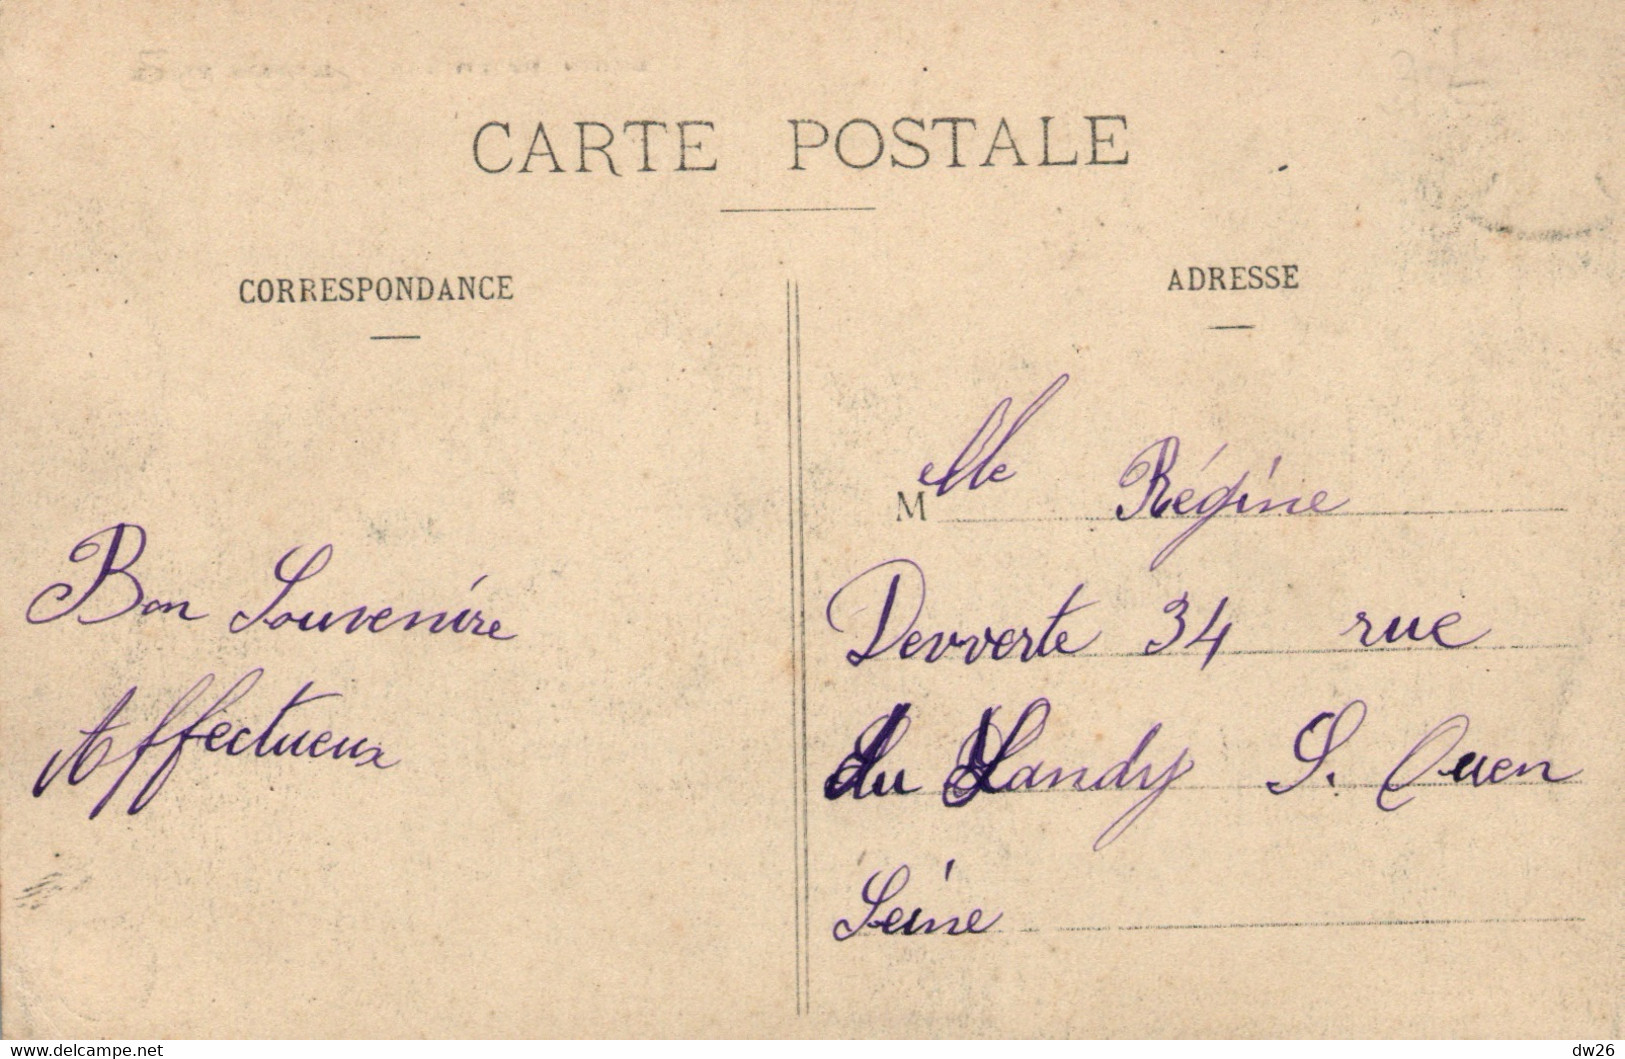 CARTE POSTALE
CORRESPONDANCE
Bon Souvenire
Affectueux
ADRESSE
Melle Régine
Devverte 34 rue
du Landy S. Ouen
Seine
www.delcampe.net
dw26